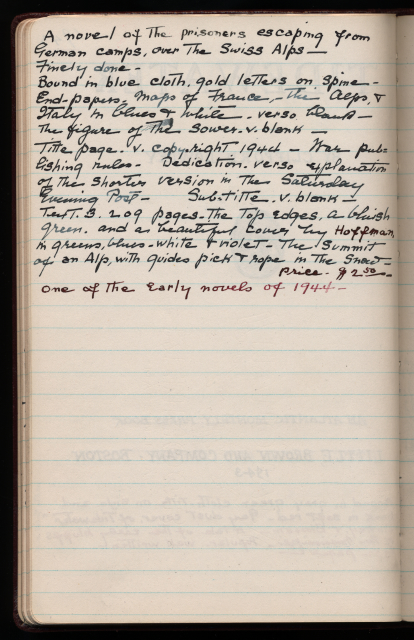 A novel of the prisoners escaping from
German camps, over the Swiss Alps—
Finely done—
Bound in blue cloth, gold letters on spine—
End-papers—Maps of France,—the Alps, &
Italy in blues & white. verso blank—
The figure of the Sower. v. blank—
Title page. v. copyright 1944 — War pub-
lishing rules. Dedication. verso explanation
of the shorter version in the Saturday
Evening Post— Sub-title. v. blank—
Text. 3. 209 pages—the top edges, a bluish
green. and a beautiful cover by Hoffman,
in greens, blues—white & violet—The Summit
of an Alp, with guides pick & rope in the Snow—
Price. $2.50—
One of the early novels of 1944—